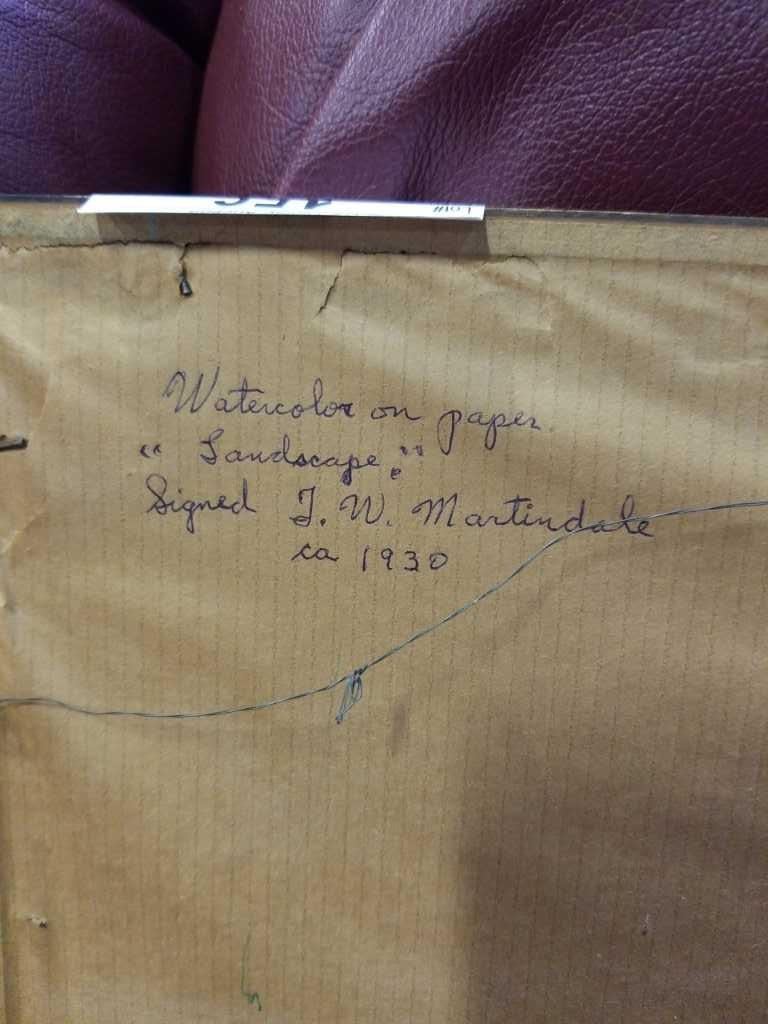 Lot#
Watercolor on paper
"Landscape."
Signed J. W. Martindale
ca 1930